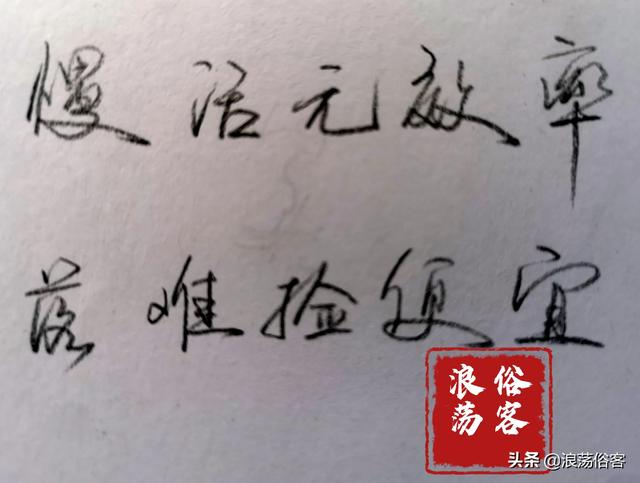 慢活元效率
落难捡便宜
浪荡
俗客
头条 @浪荡俗客